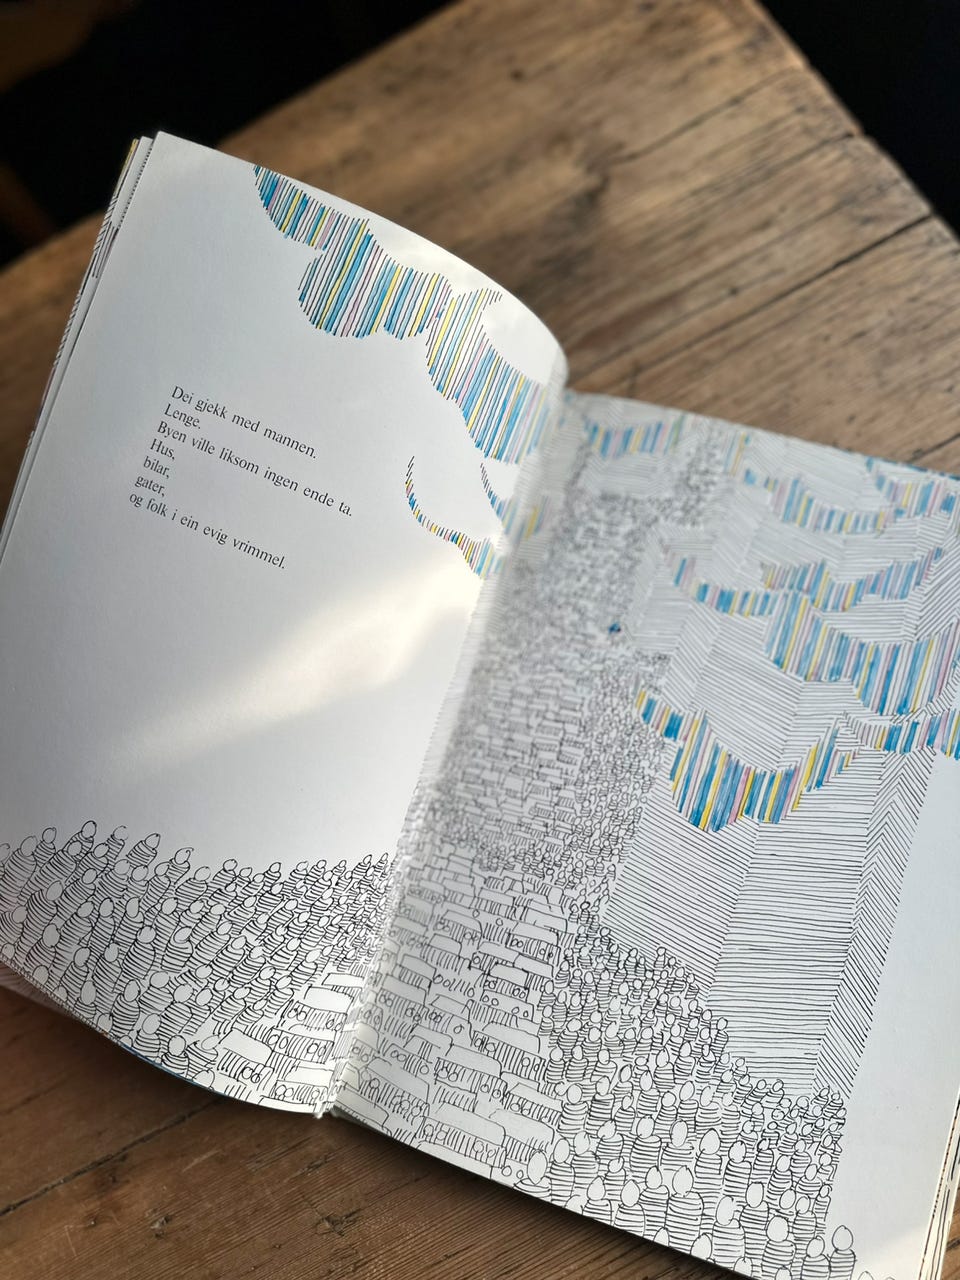 Dei gjekk med mannen.
Lenge.
Byen ville liksom ingen ende ta.
Hus,
bilar,
gater,
og folk i ein evig vrimmel.